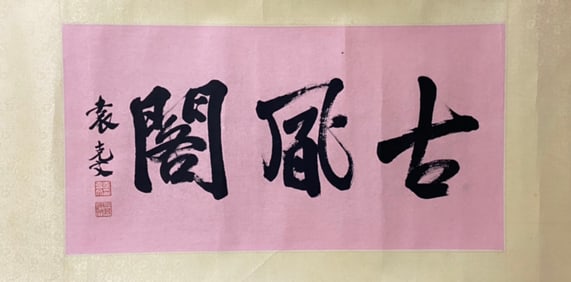 古風閣
袁克文